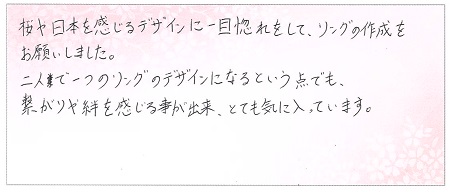 桜や日本を感じるデザインに一目惚れをして、リングの作成を
お願いしました。
二人で一つのリングのデザインになるという点でも、
繋がりや絆を感じる事が出来、とても気に入っています。